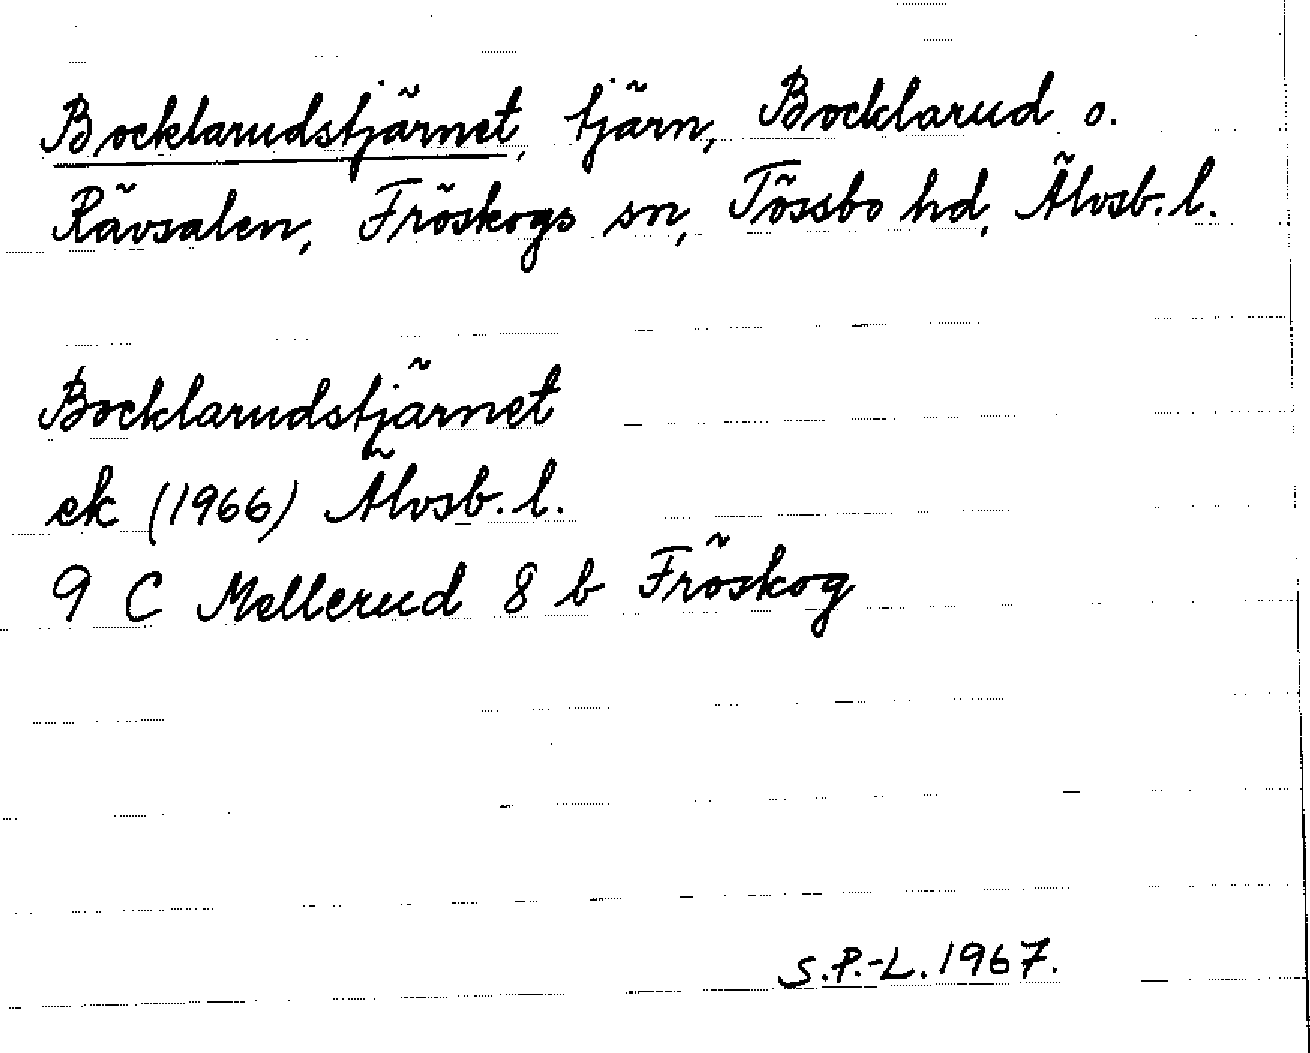 Bocklarudstjärnet, tjärn, Bocklarud o.
Rävsalen, Fröskogs sn, Tössbo hd, Älvsb. l.
Bocklarudstjärnet
ek (1966) Älvsb. l.
9 C Mellerud 8 b Fröskog
S.P.-L. 1967.